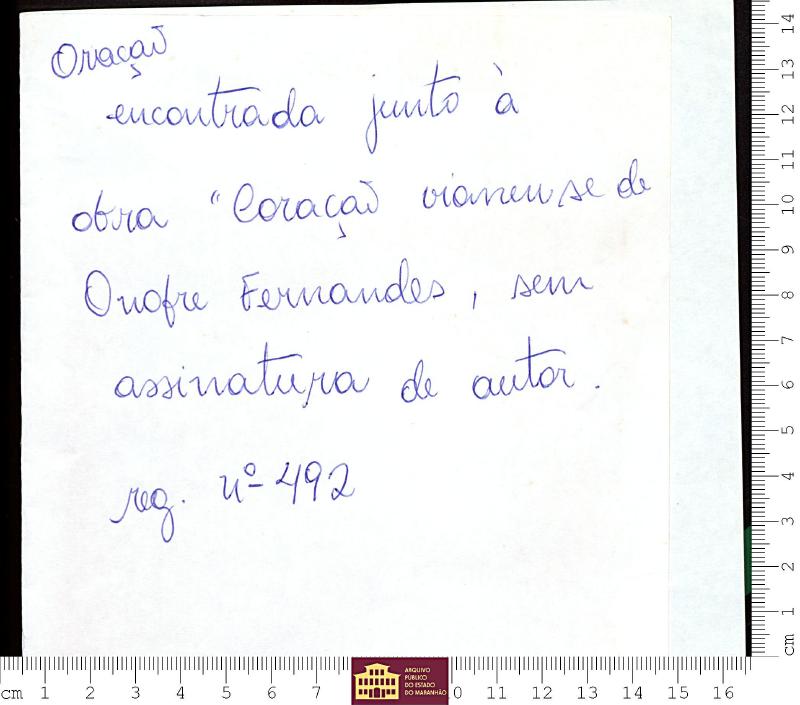 Oração
encontrada junto à
obra "Coração vianense de
Onofre Fernandes, sem
assinatura de autor.
reg. nº 492
ARQUIVO
PÚBLICO
DO ESTADO
DO MARANHÃO
cm 1 2 3 4 5 6 7 0 11 12 13 14 15 16
14
13
12
11
10
9
8
7
6
5
4
3
2
1
cm